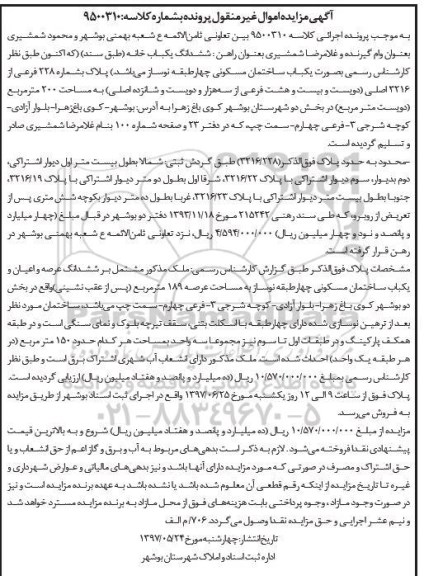 آگهی مزایده اموال غیر منقول پرونده بشماره کلاسه: ۹۵۰۰۳۱۰
به موجب پرونده اجرائی کلاسه ۹۵۰۰۳۱۰ بین تعاونی ثامن الائمه ع شعبه بهمنی بوشهر و محمود شمشیری
بعنوان وام گیرنده و غلامرضا شمشیری بعنوان راهن: ششدانگ یکباب خانه (طبق سند) (که اکنون طبق نظر
کارشناس رسمی بصورت یکباب ساختمان مسکونی چهار طبقه نوساز می‌باشد) پلاک بشماره ۲۲۸ فرعی از
۳۲۱۶ اصلی (دویست و بیست و هشت فرعی از سه‌هزار و دویست و شانزده اصلی) به مساحت ۲۰۰ مترمربع
(دویست متر مربع) در بخش دو شهرستان بوشهر کوی باغ زهرا به آدرس: بوشهر-کوی باغ زهرا-بلوار آزادی-
کوچه شرجی ۳-فرعی چهارم-سمت چپ، که در دفتر ۲۳ و صفحه شماره ۱۰۰ بنام غلامرضا شمشیری صادر
و تسلیم گردیده است.
-محدود به حدود پلاک فوق الذکر (۳۲۱۶/۲۲۸) طبق گردش ثبتی: شمالا بطول بیست متر اول دیوار اشتراکی،
دوم بدیوار، سوم دیوار اشتراکی با پلاک ۳۲۱۶/۲۲، شرقا اول بطول دو متر دیوار اشتراکی با پلاک ۳۲۱۶/۱۹،
جنوبا بطول بیست متر دیوار اشتراکی با پلاک ۳۲۱۶/۲۳، غربا بطول ده متر دیوار بکوچه شش متری پس از
تعریض از روبرو، که طی سند رهنی ۲۱۵۲۴۲ مورخ ۱۳۹۲/۱۱/۱۸ دفتر دو بوشهر در قبال مبلغ (چهار میلیارد
و پانصد و نود و چهار میلیون ریال) ۴/۵۹۴/۰۰۰/۰۰۰ ریال، نزد تعاونی ثامن الائمه ع شعبه بهمنی بوشهر در
رهن قرار گرفته است.
مشخصات پلاک فوق الذکر طبق گزارش کارشناس رسمی: ملک مذکور مشتمل بر ششدانگ عرصه و اعیان و
یکباب ساختمان مسکونی چهار طبقه نوساز به مساحت عرصه ۱۸۹ مترمربع (پس از عقب نشینی) واقع در بخش
دو بوشهر کوی باغ زهرا-بلوار آزادی-کوچه شرجی ۳-فرعی چهارم-سمت چپ می‌باشد، ساختمان مورد نظر
بعد از ترهین نوسازی شده دارای چهار طبقه با اسکلت بتنی، سقف تیرچه بلوک و نمای سنگی است و در طبقه
همکف پارکینگ و در طبقات اول تا سوم نیز مجموعا سه واحد بمساحت هر کدام حدود ۱۵۰ متر مربع (در
هر طبقه یک واحد) احداث شده است ملک مذکور دارای انشعاب آب شهری اشتراک برق است و طبق نظر
کارشناس رسمی بمبلغ ۱۰/۵۷۰/۰۰۰/۰۰۰ ریال (ده میلیارد و پانصد و هفتاد میلیون ریال) ارزیابی گردیده است.
پلاک فوق از ساعت ۹ الی ۱۲ روز یکشنبه مورخ ۱۳۹۷/۰۶/۲۵ در اجرای ثبت اسناد بوشهر از طریق مزایده
به فروش می‌رسد.
مزایده از مبلغ ۱۰/۵۷۰/۰۰۰/۰۰۰ ریال (ده میلیارد و پانصد و هفتاد میلیون ریال) شروع و به بالاترین قیمت
پیشنهادی نقدا فروخته می‌شود. لازم به ذکر است بدهی‌های مربوط به آب و برق و گاز اعم از حق انشعاب و یا
حق اشتراک و مصرف در صورتی که مورد مزایده دارای آنها باشد و نیز بدهی‌های مالیاتی و عوارض شهرداری و
غیره تا تاریخ مزایده از اینکه رقم قطعی آن معلوم شده باشد یا نشده باشد به عهده برنده مزایده است و نیز
در صورت وجود مازاد، وجوه پرداختی بابت هزینه‌های فوق از محل مازاد به برنده مزایده مسترد خواهد شد
و نیم عشر اجرایی و حق مزایده نقدا وصول می‌گردد. ۷۰۶/م الف
تاریخ انتشار: چهارشنبه مورخ ۱۳۹۷/۰۵/۲۴
اداره ثبت اسناد و املاک شهرستان بوشهر
۰۲۱-۸۸۳۴۹۶۷۰-۵